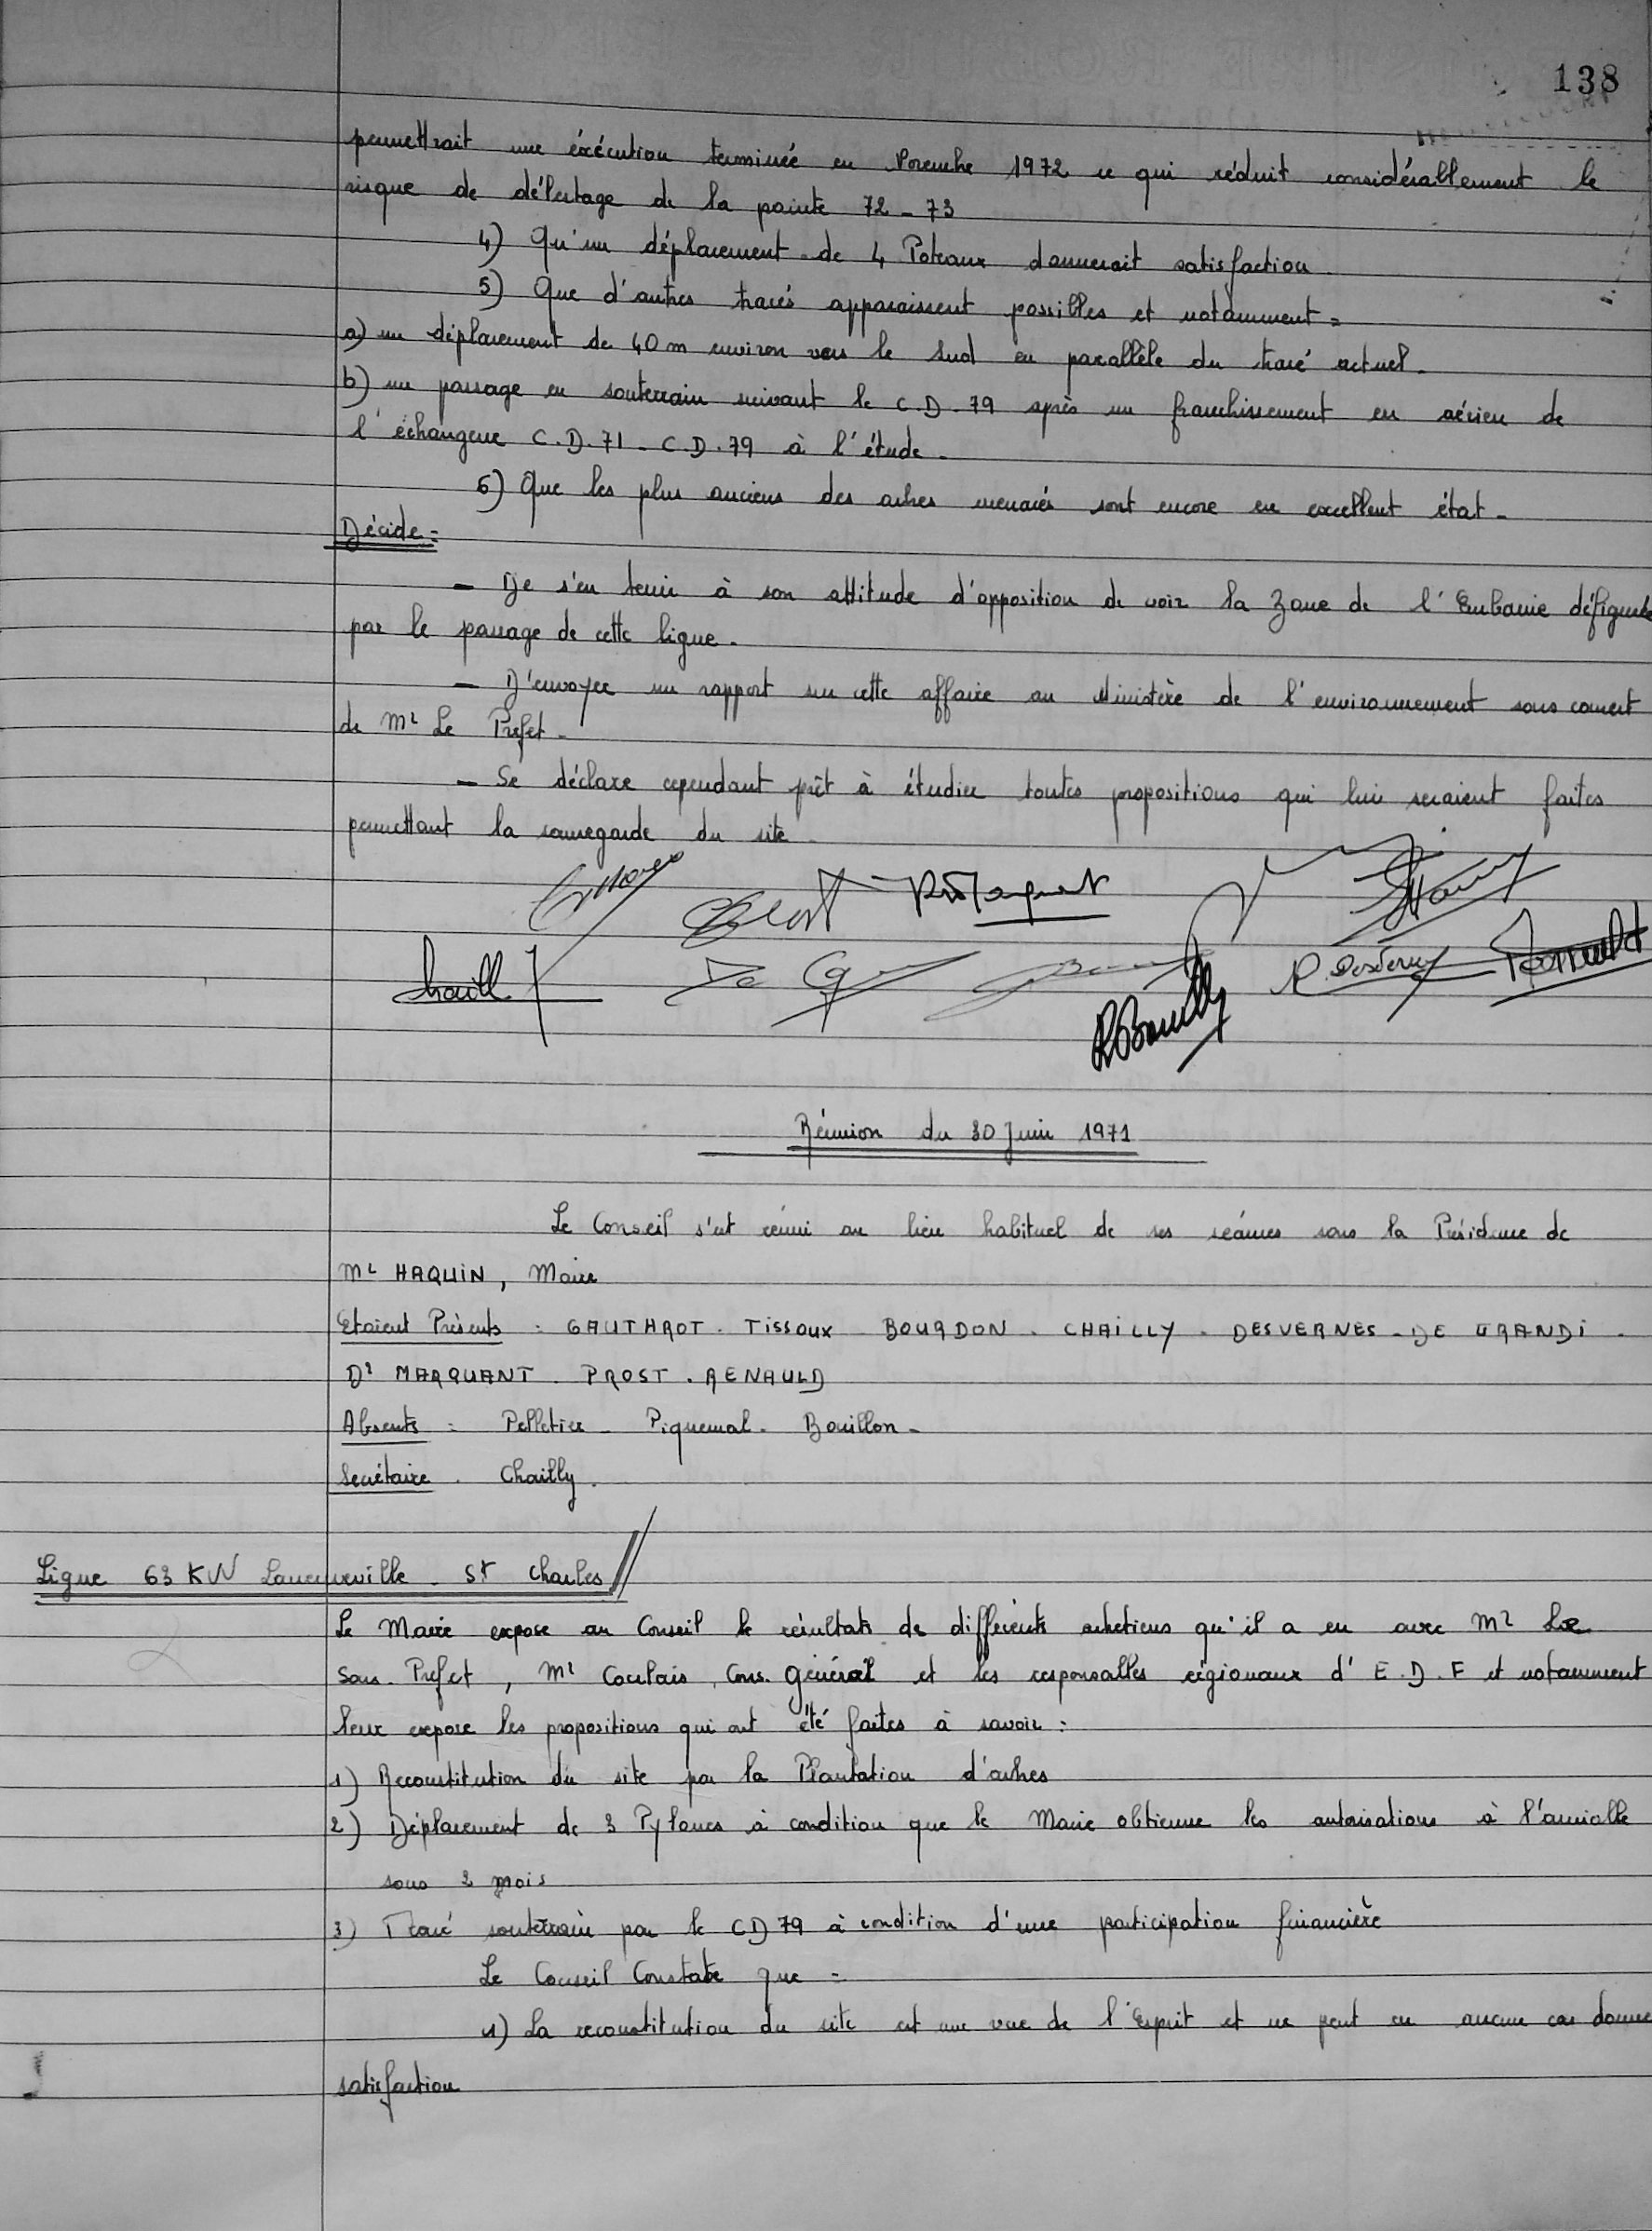 138
permettrait une éxécution terminée en Novembre 1972 ce qui réduit considérablement le
risque de délestage de la pointe 72 - 73
4) Qu'un déplacement de 4 Poteaux donnerait satisfaction
5) Que d'autres tracés apparaissent possibles et notamment =
a) un déplacement de 40 m environ vers le Sud en parallèle du tracé actuel.
b) un passage en souterrain suivant le C.D. 79 après un franchissement en aérien de
l'échangeur C.D. 71 - C.D. 79 à l'étude.
6) Que les plus anciens des arbres menacés sont encore en excellent état.
Décide =
- De s'en tenir à son attitude d'opposition de voir la Zone de l'Embanie défigurée
par le passage de cette ligne.
- D'envoyer un rapport sur cette affaire au Ministère de l'environnement sous couvert
de Mr Le Préfet.
- Se déclare cependant prêt à étudier toutes propositions qui lui seraient faites
permettant la sauvegarde du site.
Réunion du 30 Juin 1971
Le Conseil s'est réuni au lieu habituel de ses séances sous la Présidence de
Mr HAQUIN, Maire
Etaient Présents : GAUTHROT - TISSOUX - BOURDON - CHAILLY - DESVERNES - DE GRANDI -
Dr MARQUANT - PROST - RENAULD
Absents : Pelletier - Piquemal - Bouillon -
Secrétaire . Chailly .
Ligne 63 KW Laneuveville - St Charles //
Le Maire expose au Conseil le résultats de différents entretiens qu'il a eu avec Mr Le
Sous-Préfet, Mr Coulais, Cons. Général et les responsables régionaux d'E.D.F et notamment
leur expose les propositions qui ont été faites à savoir :
1) Reconstitution du site par la Plantation d'arbres
2) Déplacement de 3 Pylones à condition que le Maire obtienne les autorisations à l'amiable
sous 2 mois
3) Tracé souterrain par le CD 79 à condition d'une participation financière
Le Conseil Constate que =
1) La reconstitution du site est une vue de l'Esprit et ne peut en aucun cas donner
satisfaction